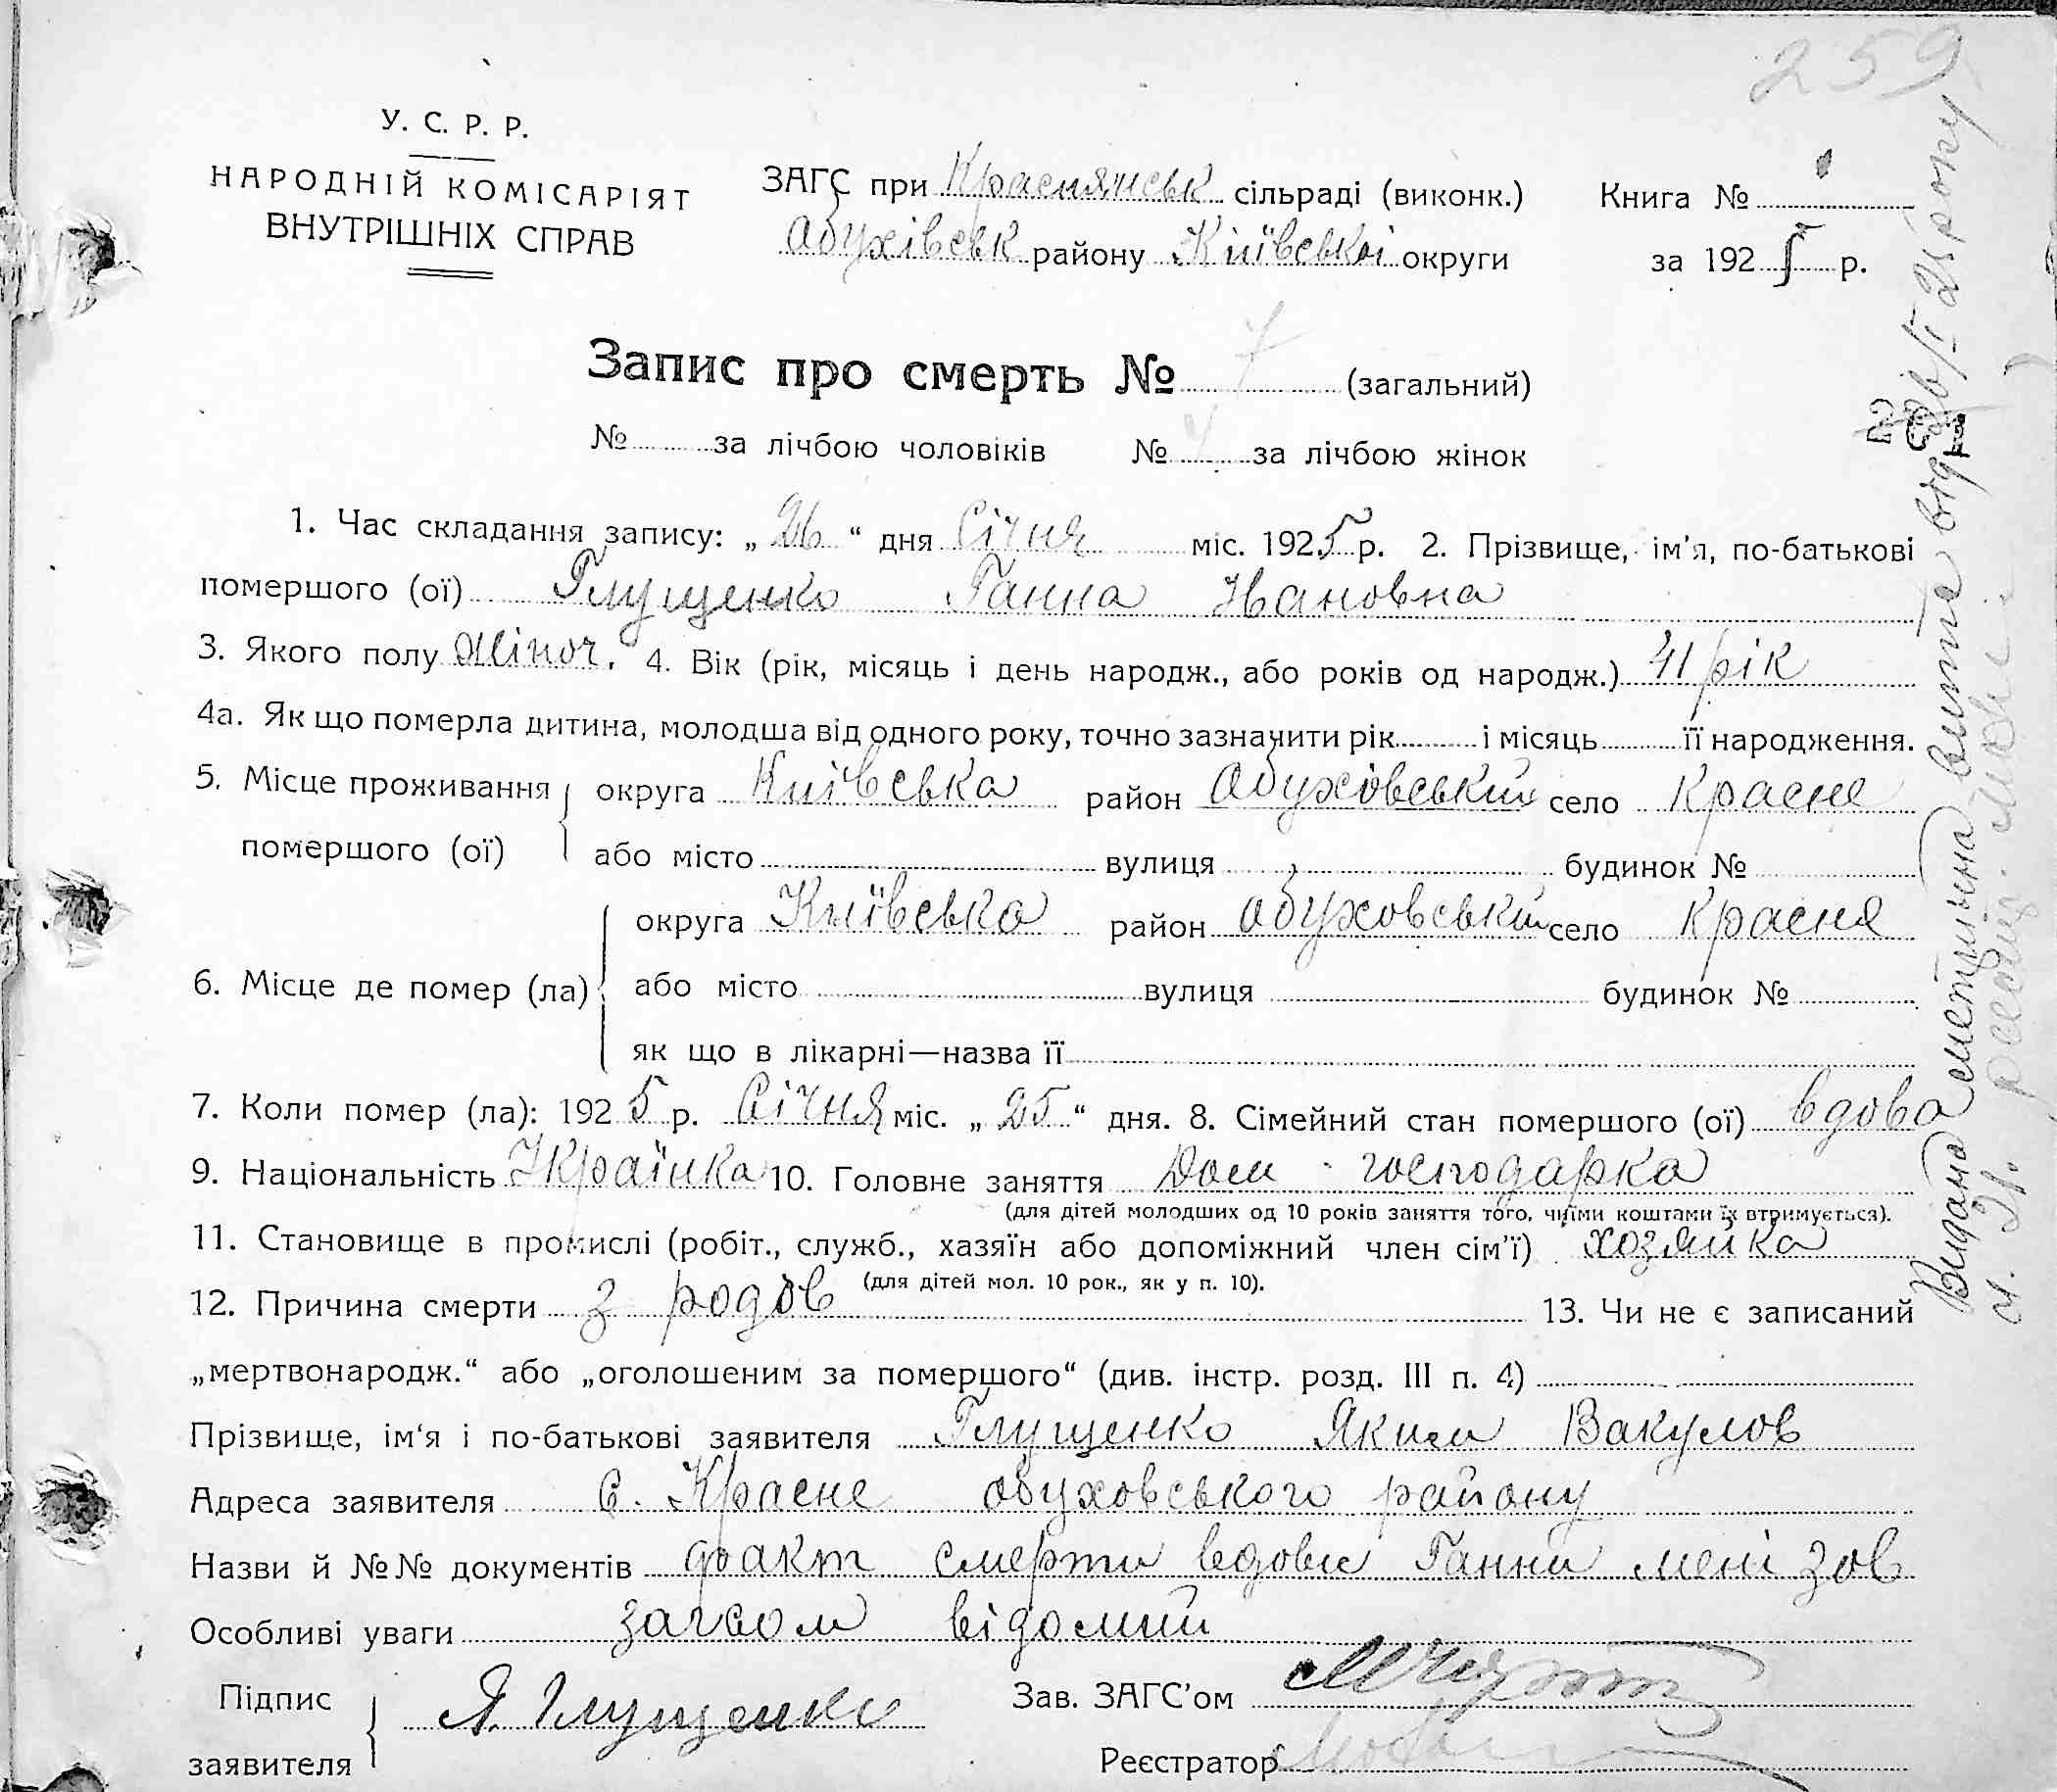 259
У. С. Р. Р.
НАРОДНІЙ КОМІСАРІЯТ
ВНУТРІШНІХ СПРАВ
ЗАГС при Краснянськ сільраді (виконк.) Книга №
Обухівськ району Київської округи за 1925 р.
Запис про смерть № 7 (загальний)
№ за лічбою чоловіків № 4 за лічбою жінок
1. Час складання запису: „26“ дня Січня міс. 1925 р. 2. Прізвище, ім'я, по-батькові
помершого (ої) Глущенко Ганна Ивановна
3. Якого полу Жіноч. 4. Вік (рік, місяць і день народж., або років од народж.) 41 рік
4а. Як що померла дитина, молодша від одного року, точно зазначити рік і місяць її народження.
5. Місце проживання округа Київська район Обуховський село Красне
помершого (ої) або місто вулиця будинок №
округа Київська район Обуховський село Красня
6. Місце де помер (ла) або місто вулиця будинок №
як що в лікарні—назва її
7. Коли помер (ла): 1925 р. Січня міс. „25“ дня. 8. Сімейний стан помершого (ої) вдова
9. Національність Українка 10. Головне заняття Дом-господарка
(для дітей молодших од 10 років заняття того, чиїми коштами їх втримується).
11. Становище в промислі (робіт., служб., хазяїн або допоміжний член сім'ї) хозяйка
(для дітей мол. 10 рок., як у п. 10).
12. Причина смерти з родов 13. Чи не є записаний
„мертвонародж.“ або „оголошеним за помершого“ (див. інстр. розд. III п. 4)
Прізвище, ім'я і по-батькові заявителя Глущенко Яким Вакулов
Адреса заявителя С. Красне Обуховського району
Назви й №№ документів факт смерти вдови Ганни мені зав
Особливі уваги загсом відомий
Підпис
заявителя Я. Глущенко
Зав. ЗАГС'ом
Реєстратор
Видана виписка від 26/I 25 року